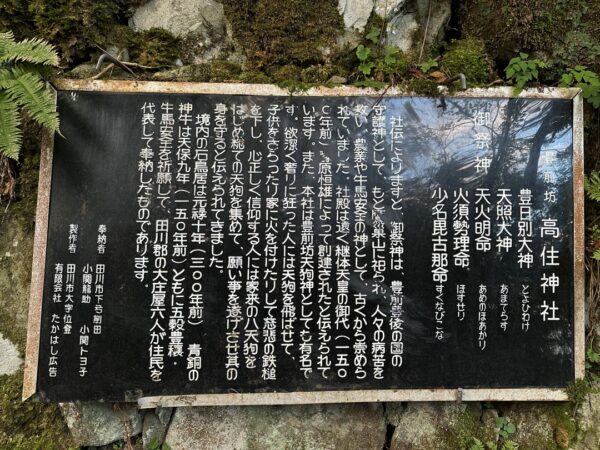 豊前坊 高住神社
御祭神
豊日別大神 とよひわけ
天照大神 あまてらす
天火明命 あめのほあかり
火須勢理命 ほすせり
少名毘古那命 すくなびこな
社伝によりますと、御祭神は、豊前豊後の国の
守護神として、もと鷹巣山に祀られ、人々の病苦を
救い、農業や牛馬安全の神として、古くから崇めら
れていました。社殿は遠く継体天皇の御代（一五〇
〇年前）、原恒雄によって創建されたと伝えられて
います。また、本社は豊前坊天狗神としても有名で
す。欲深く奢りに狂った人には天狗を飛ばせて、
子供をさらったり家に火を付けたりして慈悲の鉄槌
を下し、心正しく信仰する人には家来の八天狗を
はじめ総ての天狗を集めて、願い事を遂げさせ其の
身を守ると伝えられてきました。
境内の石鳥居は元禄十年（三〇〇年前） 青銅の
神牛は天保九年（一五〇年前）ともに五穀豊穣・
牛馬安全を祈願して、田川郡の大庄屋六人が住民を
代表して奉納したものであります。
奉納者 田川市下弓削田
小関龍助 小関トヨ子
製作者 田川市大字位登
有限会社 たかはし広告